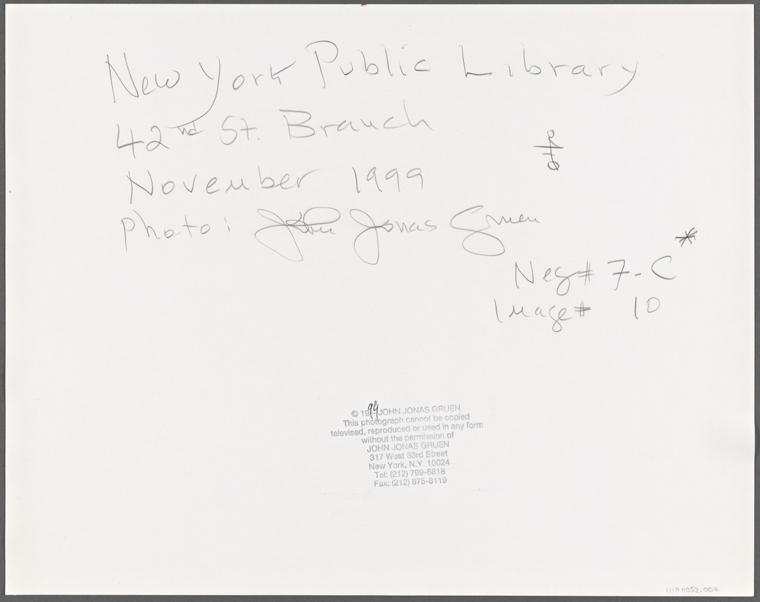 New York Public Library
42nd St. Branch
November 1999
Photo: John Jonas Gruen
Neg# 7-C *
Image# 10
© 1999 JOHN JONAS GRUEN
This photograph cannot be copied
televised, reproduced or used in any form
without the permission of
JOHN JONAS GRUEN
317 West 83rd Street
New York, N.Y. 10024
Tel: (212) 799-6818
Fax: (212) 875-8119